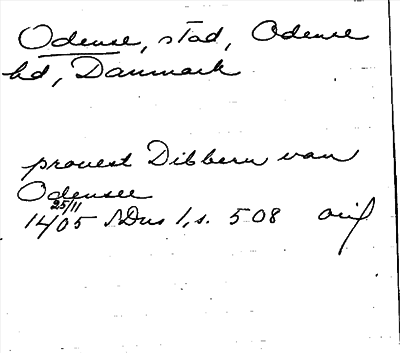 Odense, stad, Odense
hd, Danmark
provest Dibbern van
Odensee
25/11
1405 SDns 1, s. 508 orig